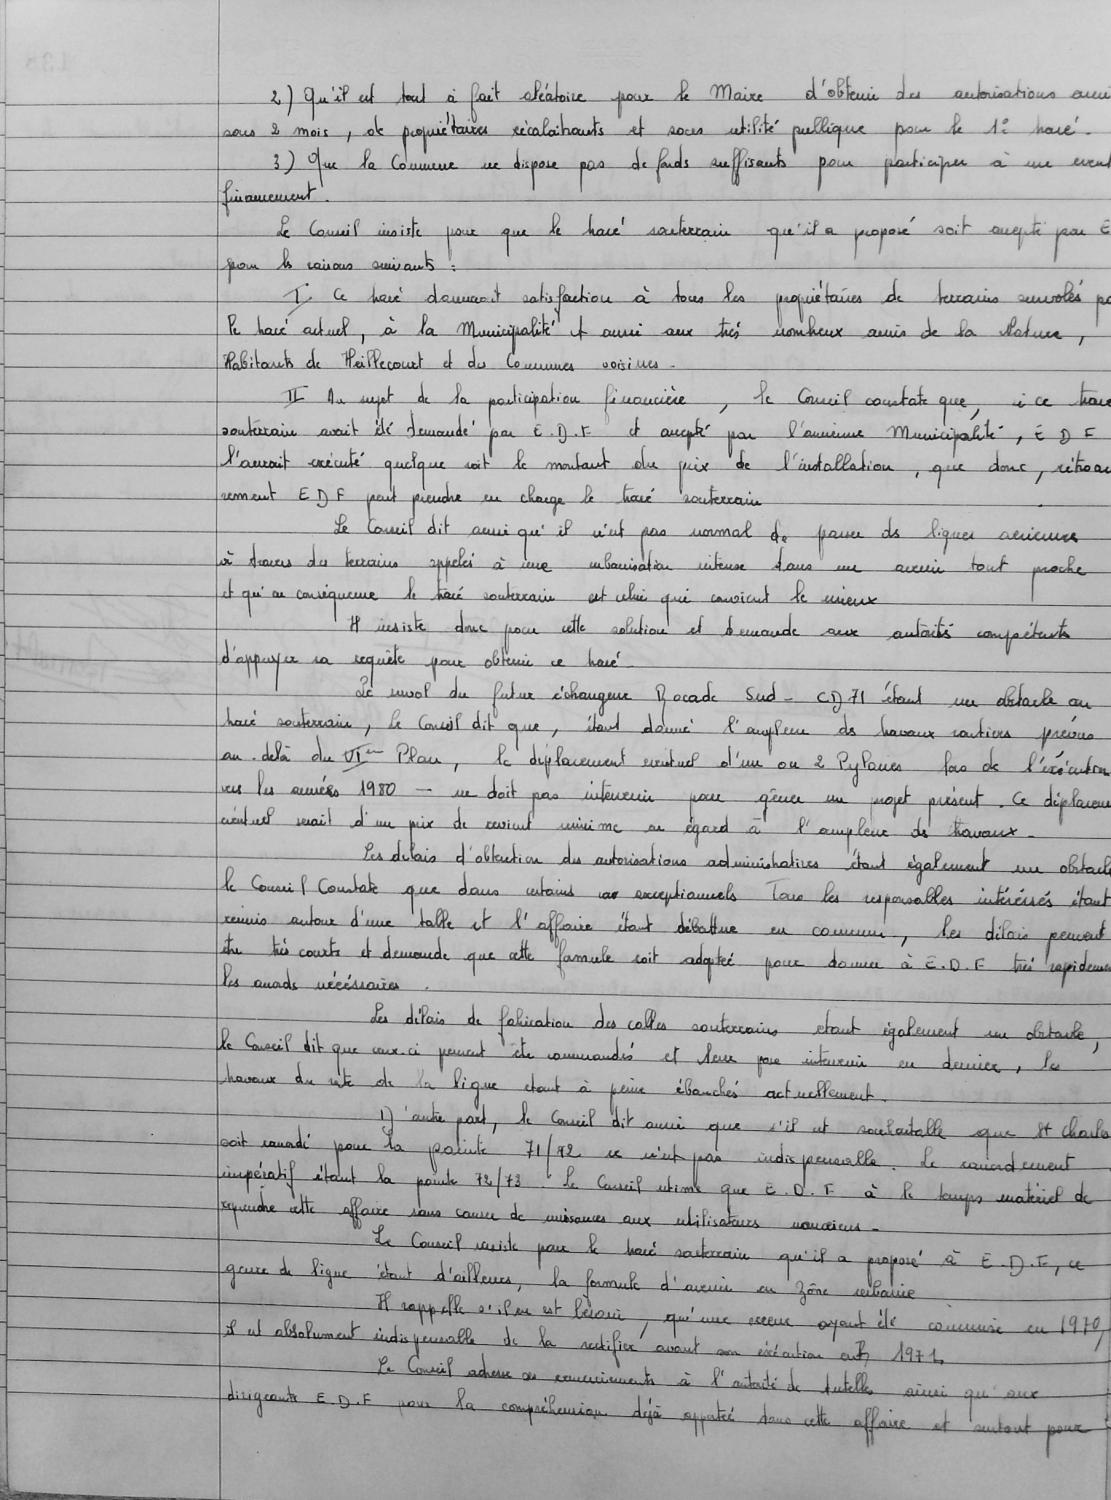 2) Qu'il est tout à fait aléatoire pour le Maire d'obtenir des autorisations
sous 2 mois, de propriétaires récalcitrants et sous utilité publique pour le 1er tracé.
3) Que la Commune ne dispose pas de fonds suffisants pour participer à un
financement.
Le Conseil insiste pour que le tracé souterrain qu'il a proposé soit accepté par E
pour les raisons suivants :
I Ce tracé donnerait satisfaction à tous les propriétaires de terrains survolés
le tracé actuel, à la Municipalité et aussi aux très nombreux amis de la Nature,
Habitants de Heillecourt et des Communes voisines -
II Au sujet de la participation financière, le Conseil constate que, si ce tracé
souterrain avait été demandé par E.D.F et accepté par l'ancienne Municipalité, E D F
l'aurait exécuté quelque soit le montant du prix de l'installation, que donc,
EDF peut prendre en charge le tracé souterrain
Le Conseil dit aussi qu'il n'est pas normal de passer ds lignes aériennes
à travers des terrains appelés à une urbanisation intense dans un avenir tout proche
et qu'en conséquence le tracé souterrain est celui qui convient le mieux
Il insiste donc pour cette solution et demande aux autorités compétents
d'appuyer sa requête pour obtenir ce tracé -
Le envol du futur échangeur Rocade Sud - CD71 étant un obstacle au
tracé souterrain, le Conseil dit que, étant donné l'ampleur ds travaux routiers prévus
au-delà du VIem Plan, le déplacement éventuel d'un ou 2 Pylones lors de l'exécution
vers les années 1980 — ne doit pas intervenir pour gêner un projet présent. Ce
éventuel serait d'un prix de revient minime en égard à l'ampleur ds travaux -
Les délais d'obtention des autorisations administratives étant également un
le Conseil Constate que dans certains cas exceptionnels Tous les responsables intéressés étant
réunis autour d'une table et l'affaire étant débattue en commun, les délais peuvent
être très courts et demande que cette formule soit adoptée pour donner à E.D.F très
les accords nécéssaires.
Les délais de fabrication des cables souterrains etant également un obstacle,
le Conseil dit que ceux-ci peuvent être commandés et leur pose intervenir en dernier, les
travaux du reste de la ligne etant à peine ébauchés actuellement.
D'autre part, le Conseil dit aussi que s'il est souhaitable que St Charles
soit raccordé pour la pointe 71/72 ce n'est pas indispensable. Le raccordement
impératif étant la pointe 72/73. Le Conseil estime que E.D.F à le temps matériel de
reprendre cette affaire sans causer de nuisances aux utilisateurs nancéiens -
Le Conseil insiste pour le tracé souterrain qu'il a proposé à E.D.F, ce
genre de ligne étant d'ailleurs, la formule d'avenir en Zône urbaine
Il rappelle s'il en est besoin, qu'une erreur ayant été commise en 1970,
il est absolument indispensable de la rectifier avant son exécution en 1971.
Le Conseil adresse ses remerciements à l'autorité de tutelle ainsi qu'aux
dirigeants E.D.F pour la compréhension déjà apportée dans cette affaire et surtout pour